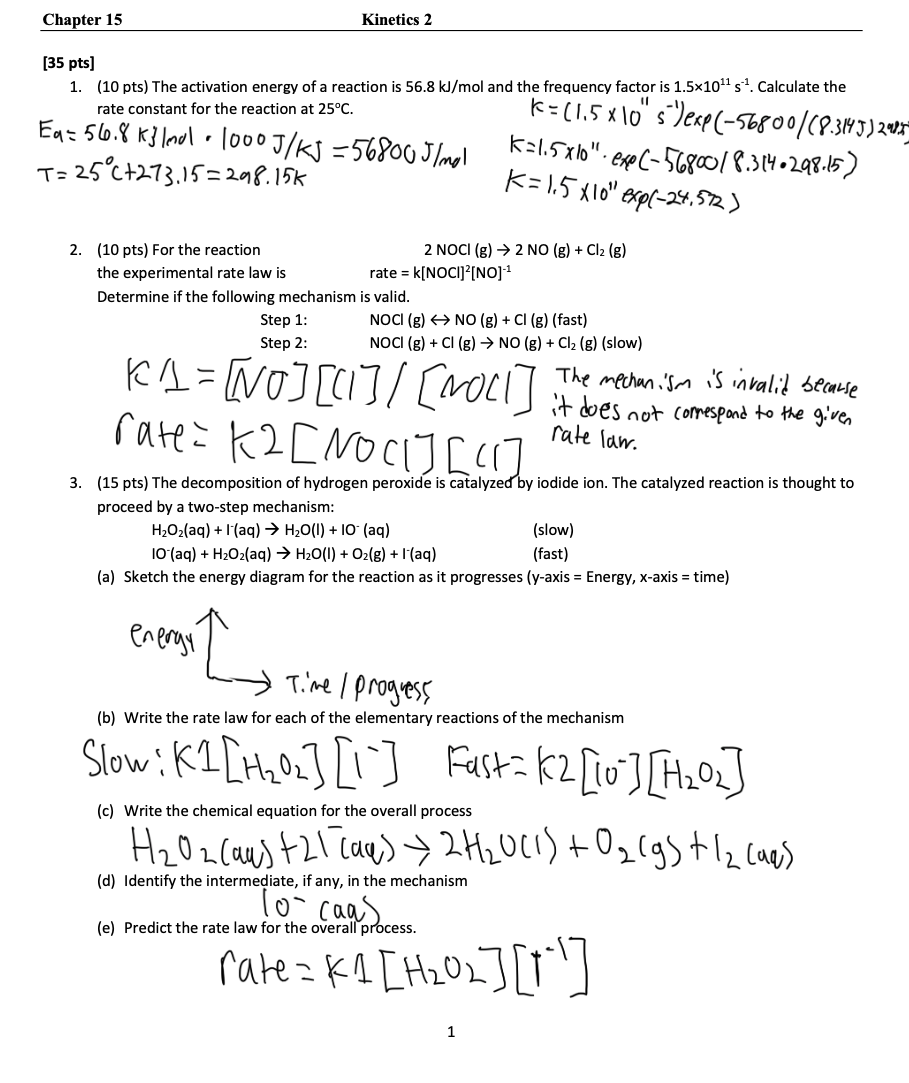 Chapter 15 Kinetics 2
[35 pts]
1. (10 pts) The activation energy of a reaction is 56.8 kJ/mol and the frequency factor is 1.5×10¹¹ s⁻¹. Calculate the
rate constant for the reaction at 25°C.
K=(1.5 x 10¹¹ s⁻¹)exp(-56800/(8.314J)298.15
Ea = 56.8 KJ/mol · 1000 J/KJ = 56800 J/mol
K=1.5x10¹¹·exp(-56800/8.314·298.15)
T= 25°C+273.15=298.15K
K=1.5 x10¹¹ exp(-24.572)
2. (10 pts) For the reaction 2 NOCl (g) → 2 NO (g) + Cl₂ (g)
the experimental rate law is rate = k[NOCl]²[NO]⁻¹
Determine if the following mechanism is valid.
Step 1: NOCl (g) ↔ NO (g) + Cl (g) (fast)
Step 2: NOCl (g) + Cl (g) → NO (g) + Cl₂ (g) (slow)
K1=[NO][Cl]/[NOCl]
rate= K2[NOCl][Cl]
The mechanism is invalid because
it does not correspond to the given
rate law.
3. (15 pts) The decomposition of hydrogen peroxide is catalyzed by iodide ion. The catalyzed reaction is thought to
proceed by a two-step mechanism:
H₂O₂(aq) + I⁻(aq) → H₂O(l) + IO⁻ (aq) (slow)
IO⁻(aq) + H₂O₂(aq) → H₂O(l) + O₂(g) + I⁻(aq) (fast)
(a) Sketch the energy diagram for the reaction as it progresses (y-axis = Energy, x-axis = time)
energy
Time / progress
(b) Write the rate law for each of the elementary reactions of the mechanism
Slow: K1[H₂O₂][I⁻] Fast= K2[IO⁻][H₂O₂]
(c) Write the chemical equation for the overall process
H₂O₂(aq)+2I⁻(aq)→2H₂O(l)+O₂(g)+I₂(aq)
(d) Identify the intermediate, if any, in the mechanism
IO⁻ (aq)
(e) Predict the rate law for the overall process.
rate= K1[H₂O₂][I⁻¹]
1